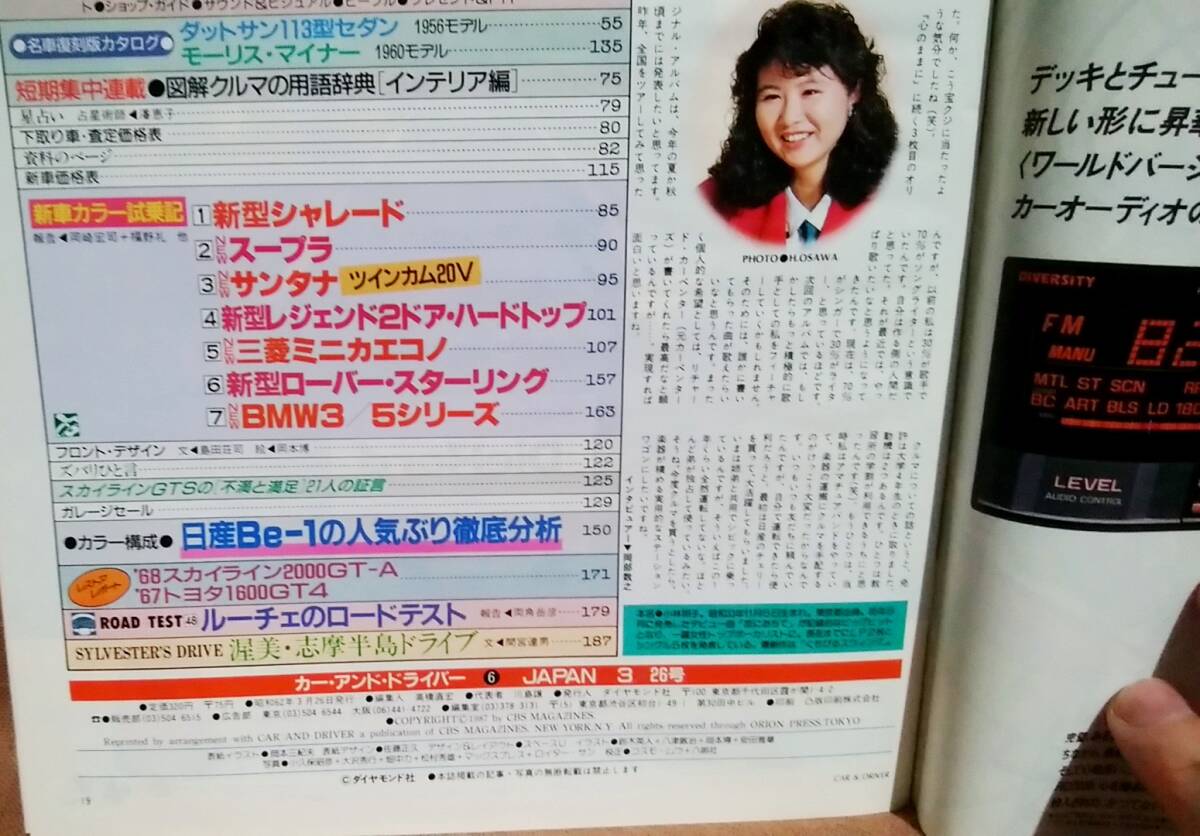 ト●ショップ・ガイド●サウンド&ビジュアル●ピープル●プレゼント&
●名車復刻版カタログ●
ダットサン113型セダン 1956モデル 55
モーリス・マイナー 1960モデル 135
短期集中連載●図解クルマの用語辞典[インテリア編] 75
星占い 占星術師◀潭恵子 79
下取り車・査定価格表 80
資料のページ 82
新車価格表 115
新車カラー試乗記
報告◀岡崎宏司+檟野礼 他
1 新型シャレード 85
2 NEW スープラ 90
3 NEW サンタナ ツインカム20V 95
4 新型レジェンド2ドア・ハードトップ 101
5 NEW 三菱ミニカエコノ 107
6 新型ローバー・スターリング 157
7 NEW BMW3/5シリーズ 163
フロント・デザイン 文◀島田荘司 絵◀岡本博 120
ズバリひと言 122
スカイラインGTSの「不満と満足」21人の証言 125
ガレージセール 129
●カラー構成●日産Be-1の人気ぶり徹底分析 150
レストア レポート
'68スカイライン2000GT-A 171
'67トヨタ1600GT4
ROAD TEST 48 ルーチェのロードテスト 報告◀両角岳彦 179
SYLVESTER'S DRIVE 渥美・志摩半島ドライブ 文◀間宮達男 187
カー・アンド・ドライバー 6 JAPAN 3 26号
●定価320円 〒75円 ●昭和62年3月26日発行 ●編集人 高橋直宏 ●代表者 川島譲 ●発行人 ダイヤモンド社 〒100 東京都千代田区霞が関1-4-2
☎●販売部(03)504 6515 ●広告部 東京(03)504 6544 大阪(06)(44)4722 ●編集室(03)378 3(3)
●COPYRIGHT©1987 by CBS MAGAZINES.
Reprinted by arrangement with CAR AND DRIVER a publication of CBS MAGAZINES. NEW YORK N.Y. All rights reserved through ORION PRESS TOKYO
©ダイヤモンド社 ●本誌掲載の記事・写真の無断転載は禁止します
19
CAR & DRIVER
た。何か、こう宝クジに当たったよ
うな気分でしたね(笑)。
『心のままに』に続く3枚目のオリ
ジナル・アルバムは、今年の夏か秋
頃までには発表したいと思ってます。
昨年、全国をツアーしてみて思った
PHOTO●H.OSAWA
んですが、以前の私は30%が歌手で
70%がソングライターという意識で
いたんです。自分は作る側の人間だ
と思ってた。それが最近では、やっ
ぱり歌いたいなと思うようになって
きたんです。現在は、70%
がシンガーで30%がライタ
ーと思っているほどです。
次回のアルバムでは、もし
かしたらもっと積極的に歌
手としての私をフィーチャ
ーしていくかもしれません。
そのためには、誰かに書い
てもらった曲が歌えたらい
いなと思うんです。まった
く個人的な希望としては、リチャー
ド・カーペンター(元カーペンター
ズ)が書いてくれたら最高だなと願
っているんですが……。実現すれば
面白いと思いますね。
クルマについての話というと、免
許は大学4年生のときに取りました。
動機は2つあるんです。ひとつは教
習所の学割が利用できるうちにと思
ったんです(笑)。もうひとつは、当
時私はアマチュアバンドをやってい
て、楽器の運搬にクルマを手配する
のがけっこう大変だったからなんで
す。いつもいつも友だちに頼んでい
たんですが、自分で運転できたら便
利だろうと。最初は日産のチェリー
を買って、大活躍してもらいました。
いまは姉弟と共用でシビックに乗っ
ているんですが、そういえばここ1
年くらい全然運転してないな。ほと
んど弟が独占して使っているみたい。
そうね、今度クルマを買うとしたら、
楽器が積める実用的なステーション
ワゴンにしたいですね。
インタビュアー▼岡部敬之
デッキとチュー
新しい形に昇華
〈ワールドバージ
カーオーディオの
DIVERSITY
FM
MANU
82
MTL ST SCN
BC ART BLS LD
LEVEL
AUDIO CONTROL